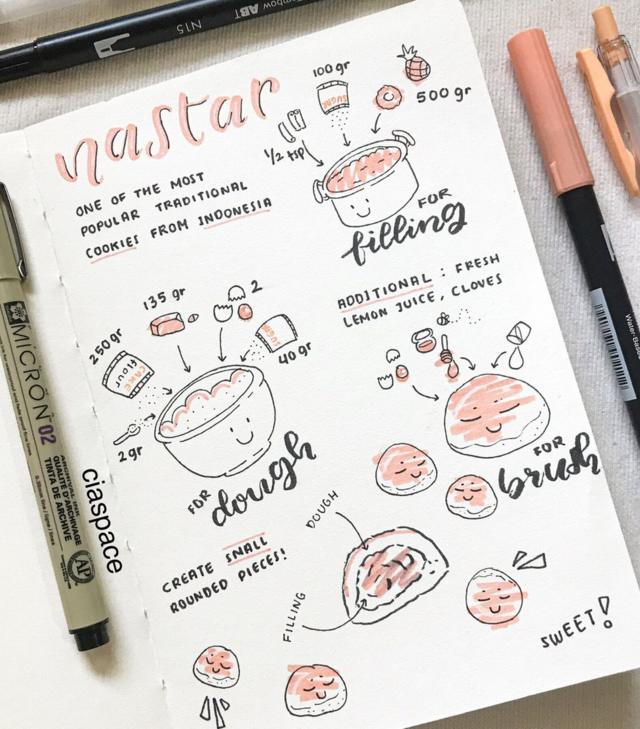 Tombow ABT
N15
nastar
ONE OF THE MOST
POPULAR TRADITIONAL
COOKIES FROM INDONESIA
100 gr
SUGAR
500 gr
1/2 tsp
FOR
filling
ADDITIONAL : FRESH
LEMON JUICE, CLOVES
135 gr
2
250 gr
CAKE
FLOUR
SUGAR
40 gr
2 gr
FOR
dough
FOR
brush
CREATE SMALL
ROUNDED PIECES!
DOUGH
FILLING
SWEET!
MICRON 02
ARCHIVAL INK
QUALITÉ D'ARCHIVAGE
TINTA DE ARCHIVE
AP
ciaspace
Water-Based